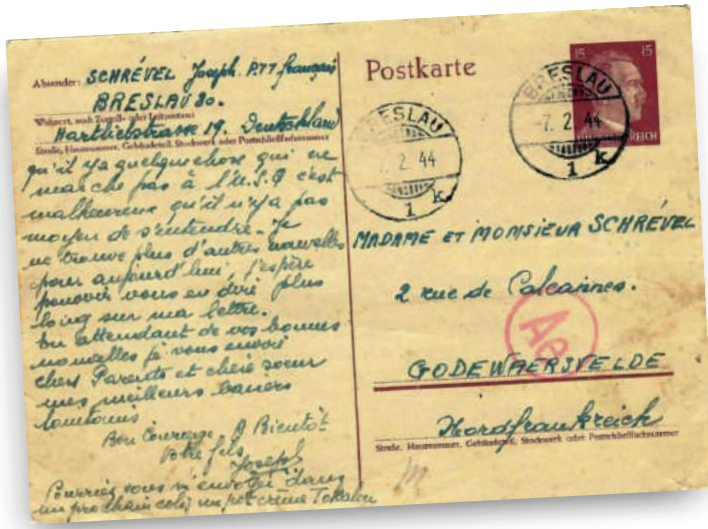 Absender: SCHRÉVEL Joseph. P.TT français
BRESLAU 30.
Wohnort, auch Zustell- oder Leitpostamt
Hartliebstrasse 19. Deutschland
Straße, Hausnummer, Gebäudeteil, Stockwerk oder Postschließfachnummer
qu'il y a quelque chose qui ne
marche pas à l'U.S.Q c'est
malheureux qu'il n'y a pas
moyen de s'entendre. Je
ne trouve plus d'autres nouvelles
pour aujourd'hui, j'espère
pouvoir vous en dire plus
long sur ma lettre.
En attendant de vos bonnes
nouvelles je vous envoie
chers Parents et chère soeur
mes meilleurs baisers
lointains
Bon Courage. A Bientôt
Votre fils,
Joseph
Pourriez vous m'envoyer dans
un prochain colis un pot crème Tokalon
Postkarte
15 15
REICH
BRESLAU
7. 2. 44
1 k
BRESLAU
-7. 2. 44
1 k
MADAME ET MONSIEUR SCHRÉVEL
2 rue de Calcannes.
Ae
GODEWAERSVELDE
Nordfrankreich
Straße, Hausnummer, Gebäudeteil, Stockwerk oder Postschließfachnummer